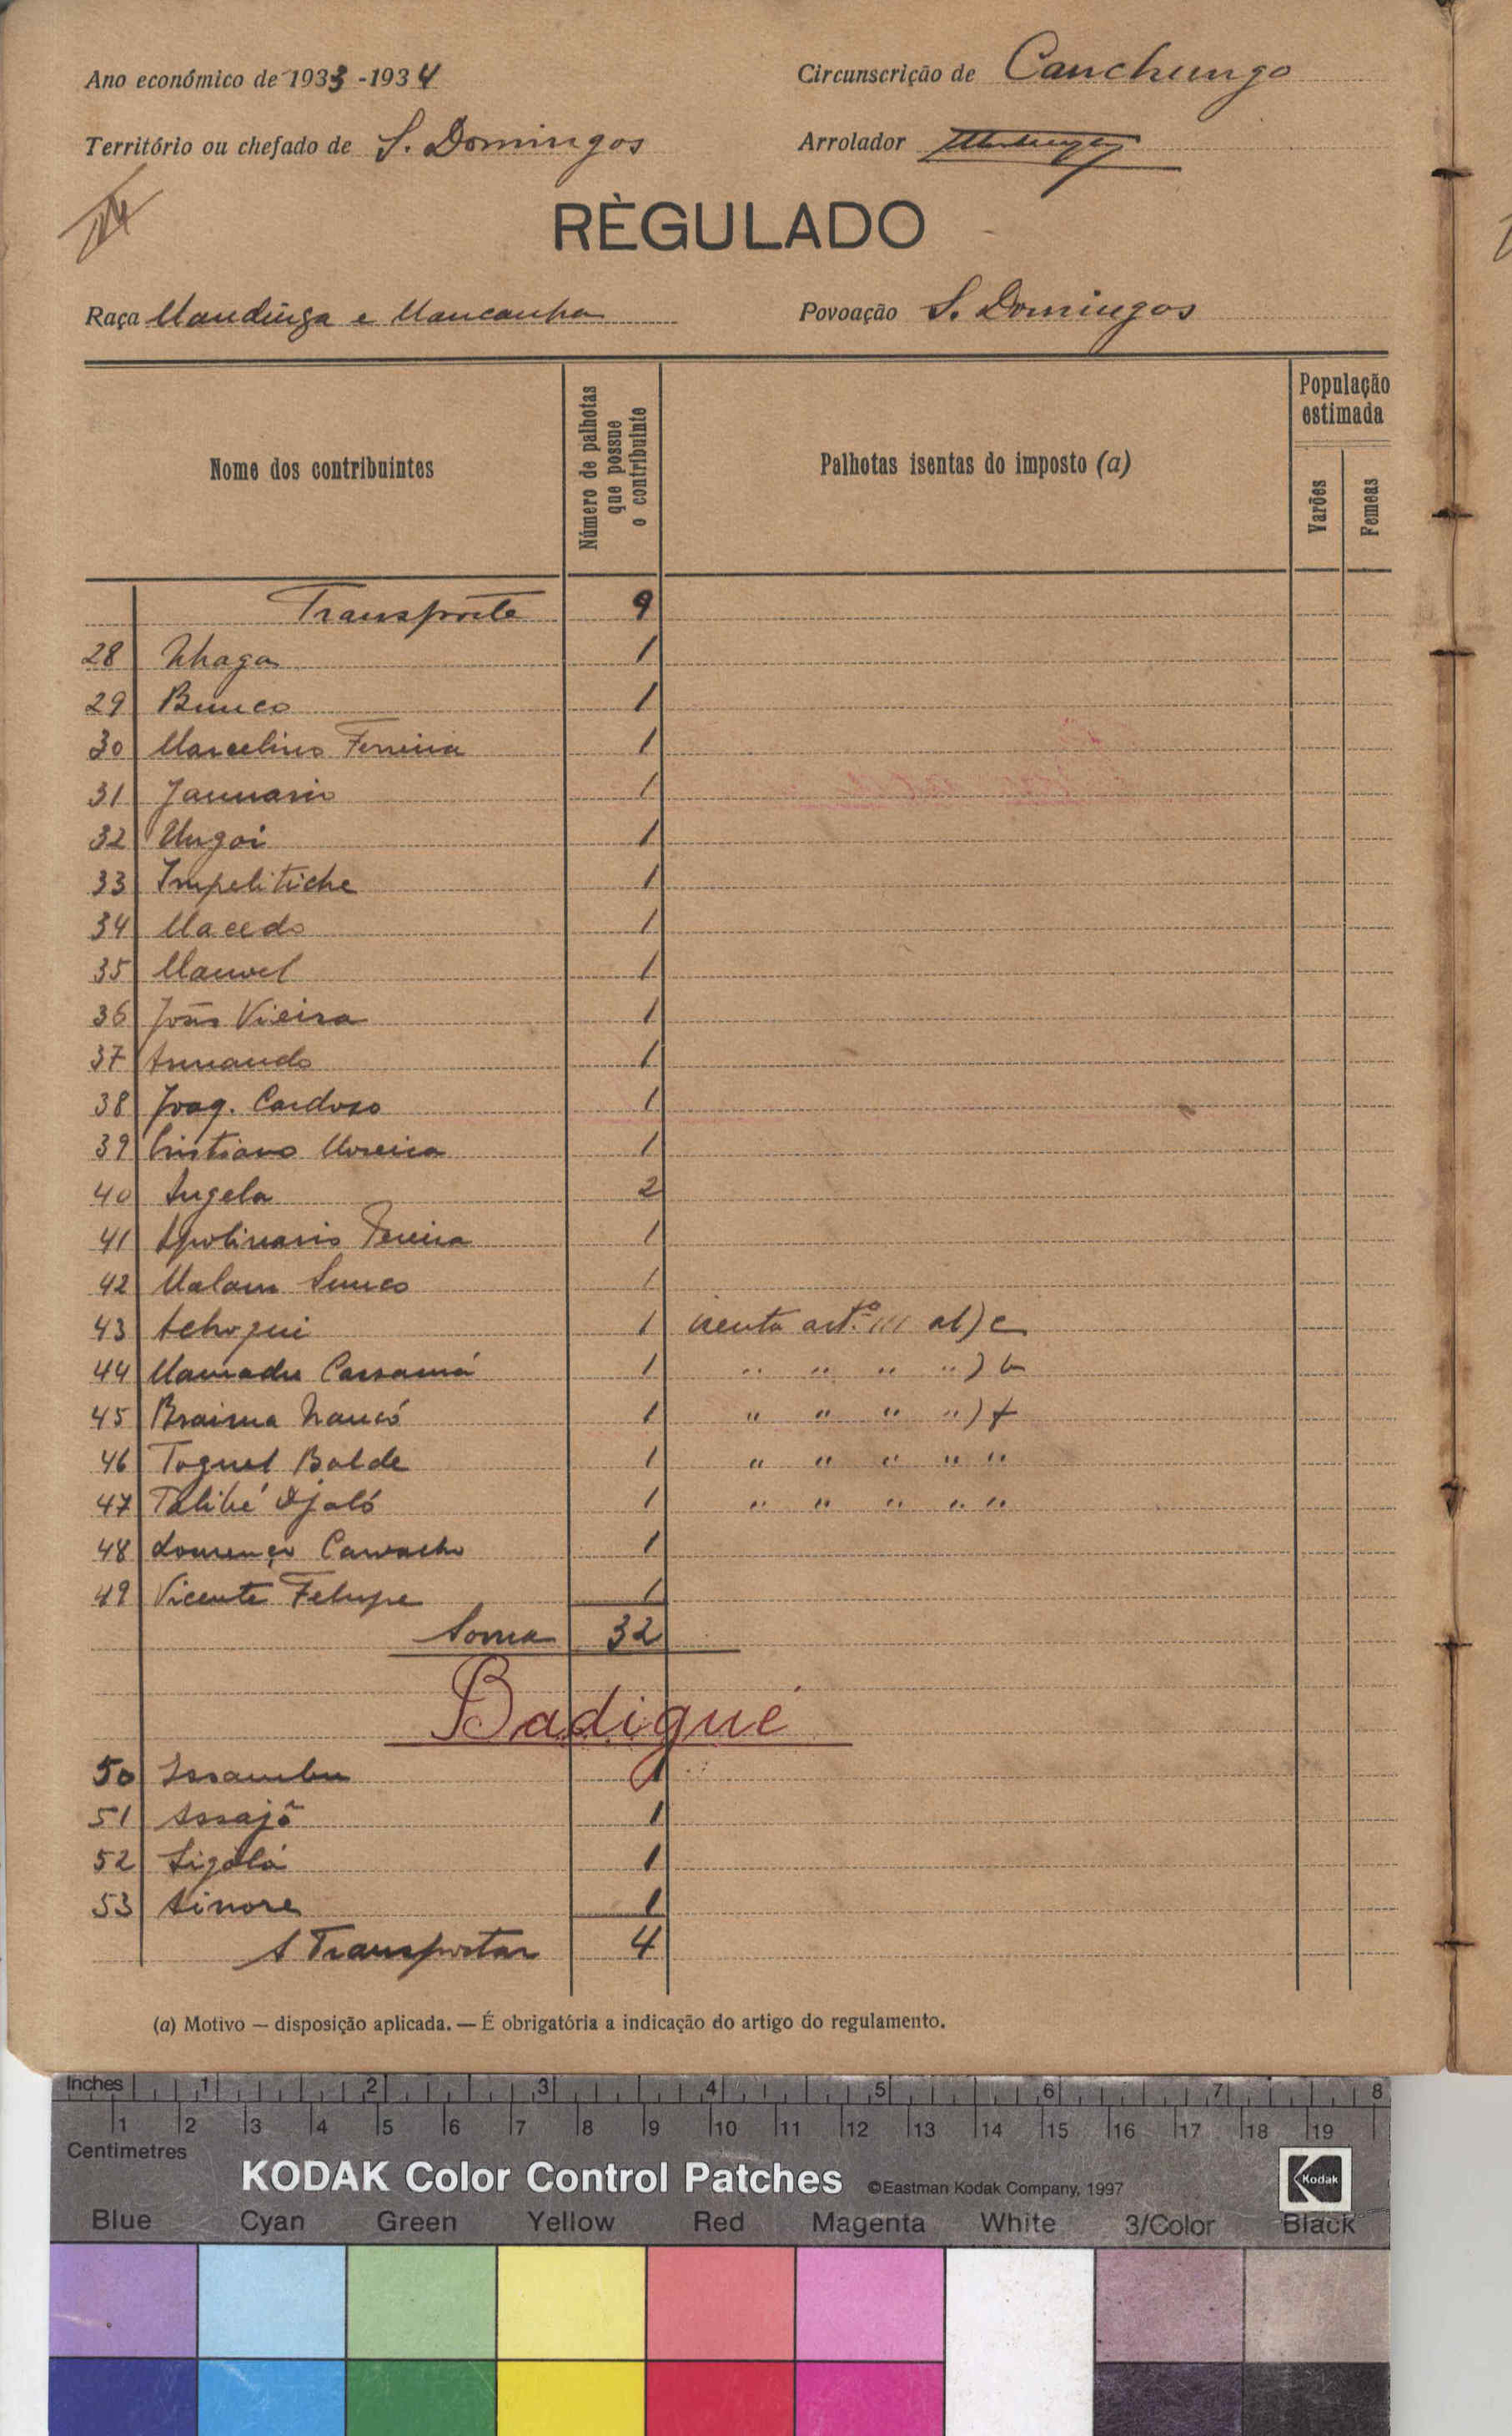 Ano económico de 1933-1934
Circunscrição de Canchungo
Território ou chefado de S. Domingos
Arrolador
RÈGULADO
Raça Mandinga e Mancanha
Povoação S. Domingos
Nome dos contribuintes
Número de palhotas que possue o contribuinte
Palhotas isentas do imposto (a)
População estimada
Varões
Femeas
Transporte 9
28 Nhaga 1
29 Bunco 1
30 Marcelino Ferreira 1
31 Januario 1
32 Ungoi 1
33 Impelitiche 1
34 Macedo 1
35 Manuel 1
36 João Vieira 1
37 Armando 1
38 Joaq. Cardoso 1
39 Cristiano Moreira 1
40 Angela 2
41 Apolinario Pereira 1
42 Malam Sunco 1
43 Achoqui 1 isenta artº 111 al) c
44 Mamadu Cassamá 1 " " " ") b
45 Braima Nancó 1 " " " ") f
46 Toguel Balde 1 " " " " "
47 Talibé Djaló 1 " " " " "
48 Lourenço Carvalho 1
49 Vicente Felupe 1
Soma 32
Badigué
50 Issambu 1
51 Assajô 1
52 Sigálá 1
53 Sinore 1
A Transportar 4
(a) Motivo — disposição aplicada. — É obrigatória a indicação do artigo do regulamento.
Inches 1 2 3 4 5 6 7 8
1 2 3 4 5 6 7 8 9 10 11 12 13 14 15 16 17 18 19
Centimetres
KODAK Color Control Patches ©Eastman Kodak Company, 1997 Kodak
Blue Cyan Green Yellow Red Magenta White 3/Color Black